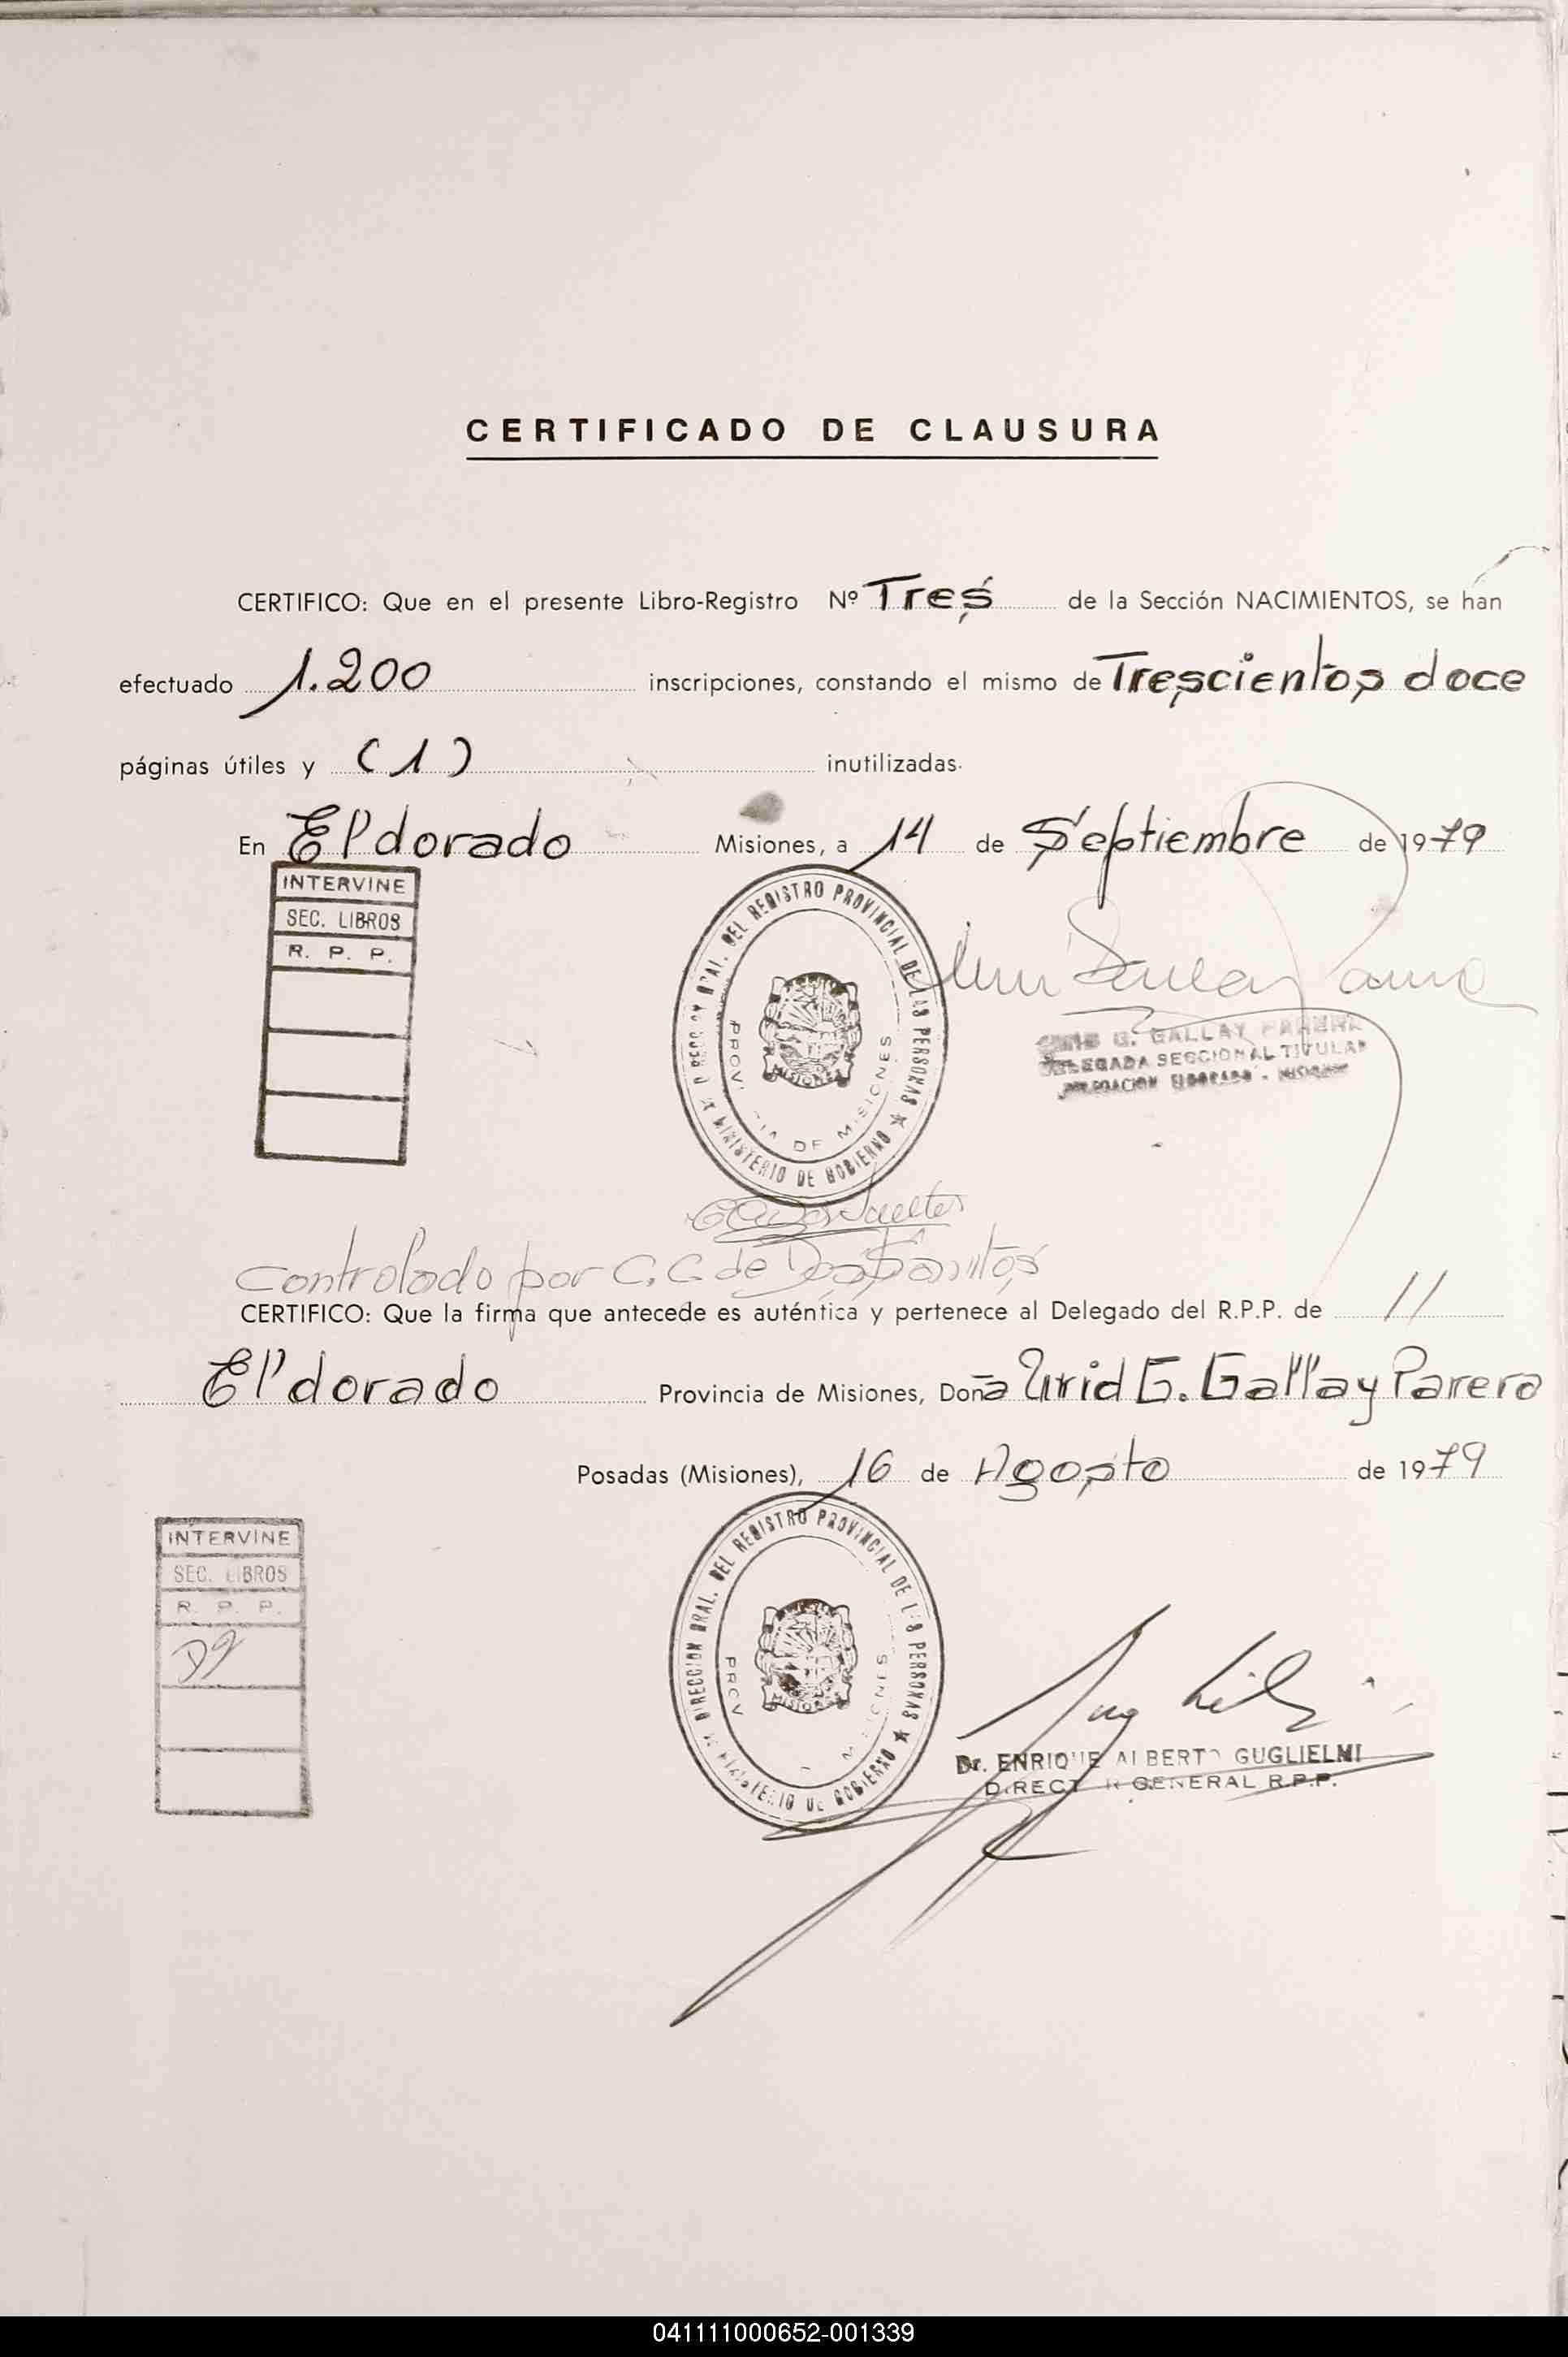 CERTIFICADO DE CLAUSURA
CERTIFICO: Que en el presente Libro-Registro Nº Tres de la Sección NACIMIENTOS, se han
efectuado 1.200 inscripciones, constando el mismo de Trescientos doce
páginas útiles y (1) inutilizadas.
En Eldorado Misiones, a 14 de Septiembre de 1979
INTERVINE
SEC. LIBROS
R. P. P.
DEL REGISTRO PROVINCIAL DE LAS PERSONAS ★ MINISTERIO DE GOBIERNO
DE MISIONES
MISIONES
G. GALLAY PARERA
DELEGADA SECCIONAL TITULAR
DELEGACION ELDORADO - MISIONES
Controlado por C. C. de
CERTIFICO: Que la firma que antecede es auténtica y pertenece al Delegado del R.P.P. de //
Eldorado Provincia de Misiones, Doña G. Gallay Parera
Posadas (Misiones), 16 de Agosto de 1979
INTERVINE
SEC. LIBROS
R. P. P.
DIRECCION GRAL. DEL REGISTRO PROVINCIAL DE LAS PERSONAS ★ MINISTERIO DE GOBIERNO
MISIONES
MISIONES
Dr. ENRIQUE ALBERTO GUGLIELMI
DIRECTOR GENERAL R.P.P.
041111000652-001339